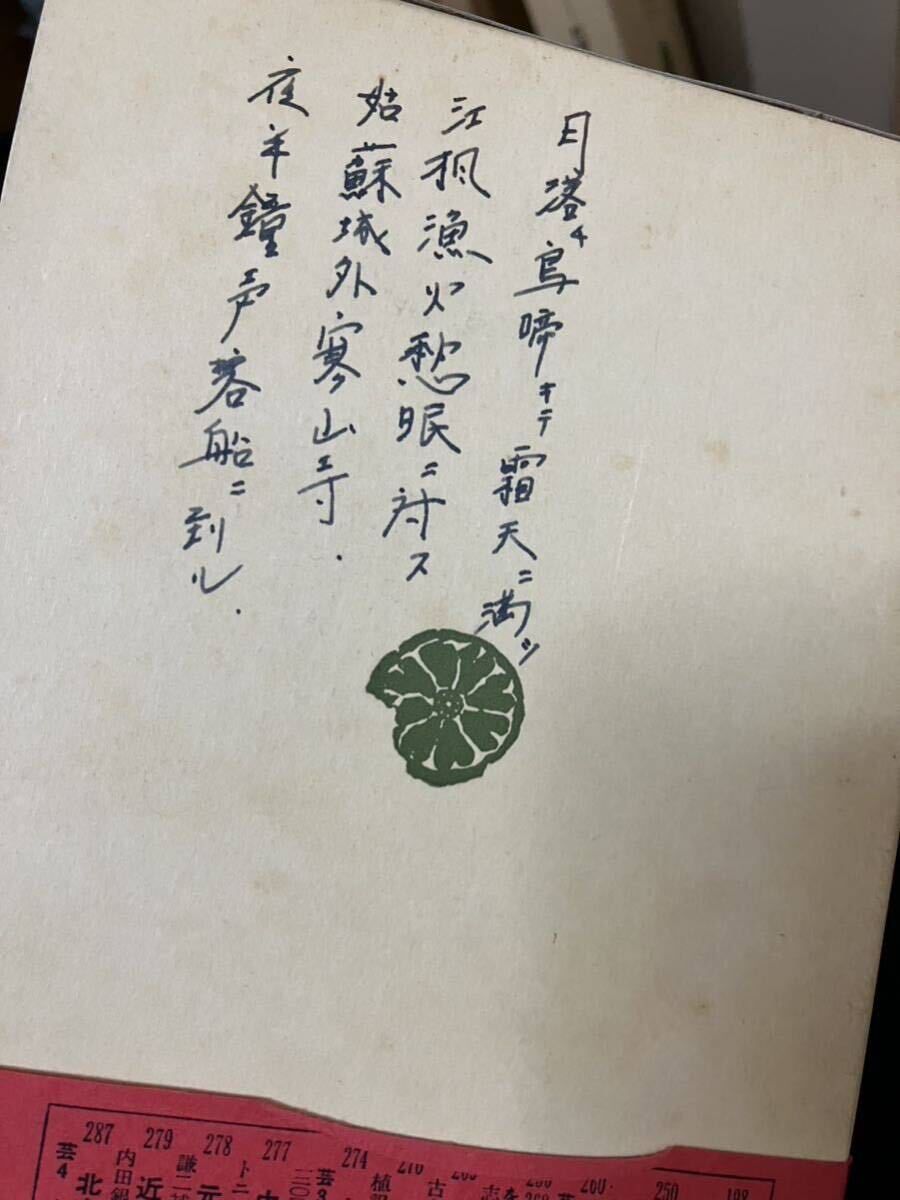 月落チ烏啼キテ霜天ニ満ツ
江楓漁火愁眠ニ対ス
姑蘇城外寒山寺.
夜半鐘声客船ニ到ル.
260.
274
277
278
279
内田
287
芸4
北
近
元